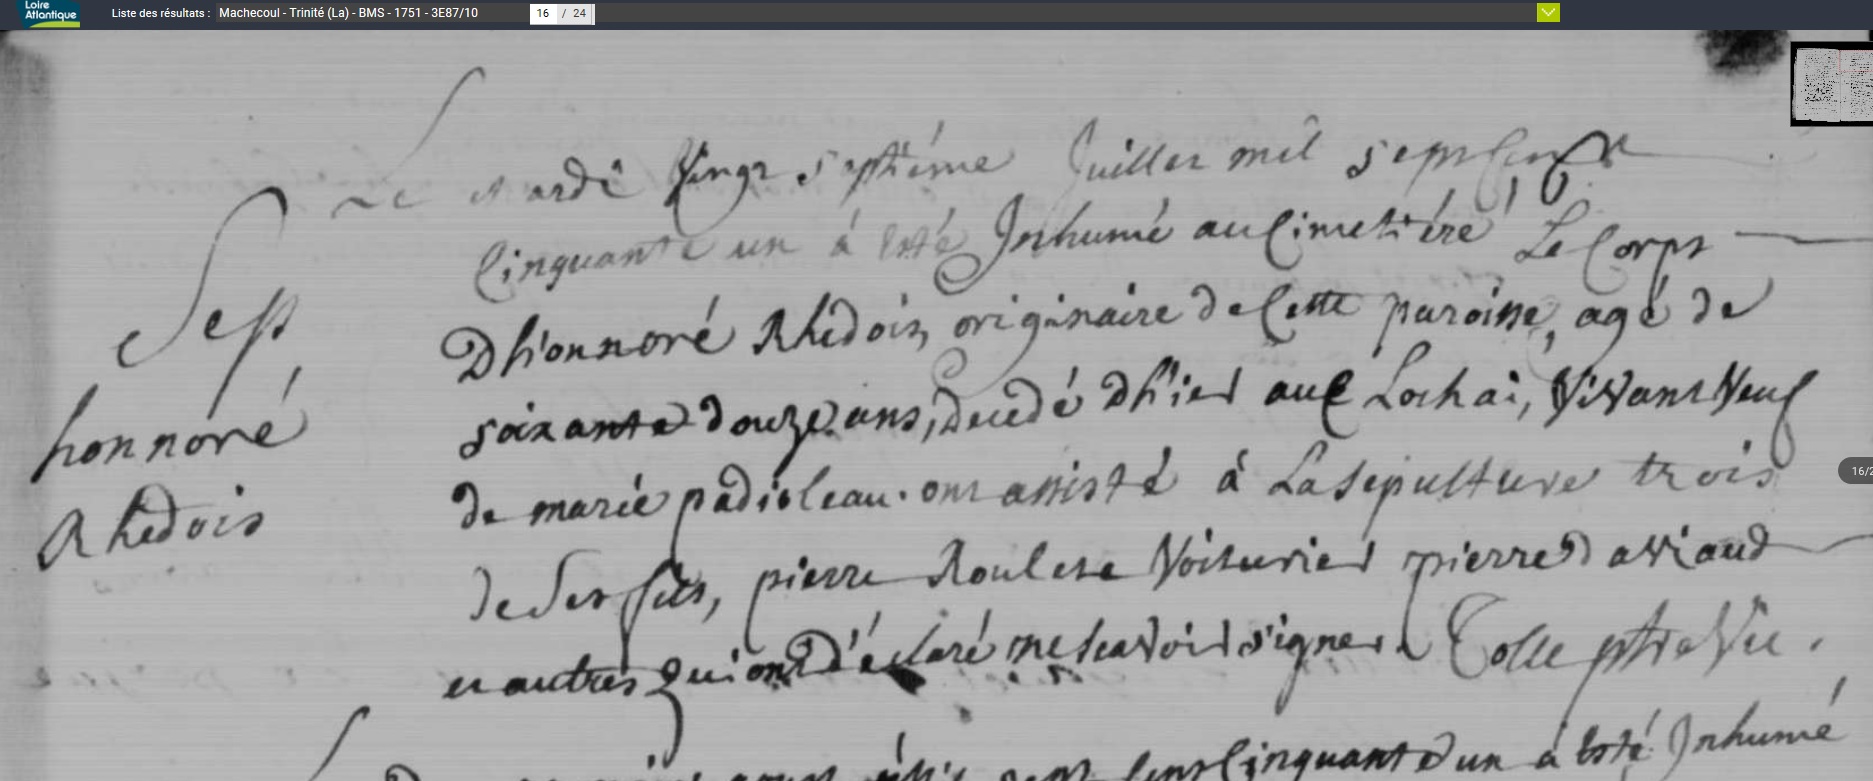 Loire
Atlantique
Liste des résultats : Machecoul - Trinité (La) - BMS - 1751 - 3E87/10 16 / 24
Le mardi Vingt septiéme Juillet mil sept Cent
Cinquante un á esté Inhumé au Cimetiére Le Corps
Sep
Dhonnoré Rhedois, originaire de Cette paroisse, agé de
soixante douze ans, decedé Dhier aux Lochai, Vivant Veuf
honnoré
de marie padioleau. ont assisté á La sepulture trois
Rhedois
16/2
de Ses fils, pierre Voiturier pierre Daviaud
et autres qui ont Déclaré ne scavoir signer. ptre Vic.
Cinquante un á esté Inhumé